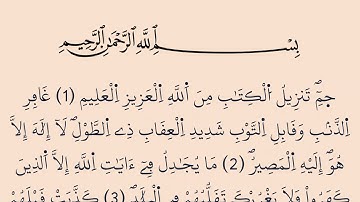 بِسْمِ اللَّهِ الرَّحْمَٰنِ الرَّحِيمِ
حمٓ تَنزِيلُ اُ۬لْكِتَٰبِ مِنَ اَ۬للَّهِ اِ۬لْعَزِيزِ اِ۬لْعَلِيمِ (1) غَافِرِ
اِ۬لذَّنۢبِ وَقَابِلِ اِ۬لتَّوْبِ شَدِيدِ اِ۬لْعِقَابِ ذِے اِ۬لطَّوْلِ لَآ إِلَٰهَ إِلَّا
هُوَ إِلَيْهِ اِ۬لْمَصِيرُ (2) مَا يُجَٰدِلُ فِےٓ ءَايَٰتِ اِ۬للَّهِ إِلَّا اَ۬لذِينَ
كَفَرُواْ فَلَا يَغْرُرْكَ تَقَلُّبُهُمْ فِے اِ۬لْبِلَٰدِ (3) كَذَّبَتْ قَبْلَهُمْ